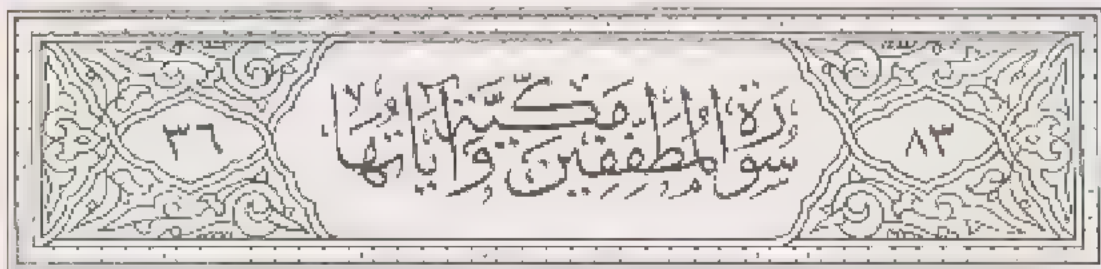 ٨٣
سُورَةُ الْمُطَفِّفِينَ مَكِّيَّة وَآيَاتُهَا
٣٦